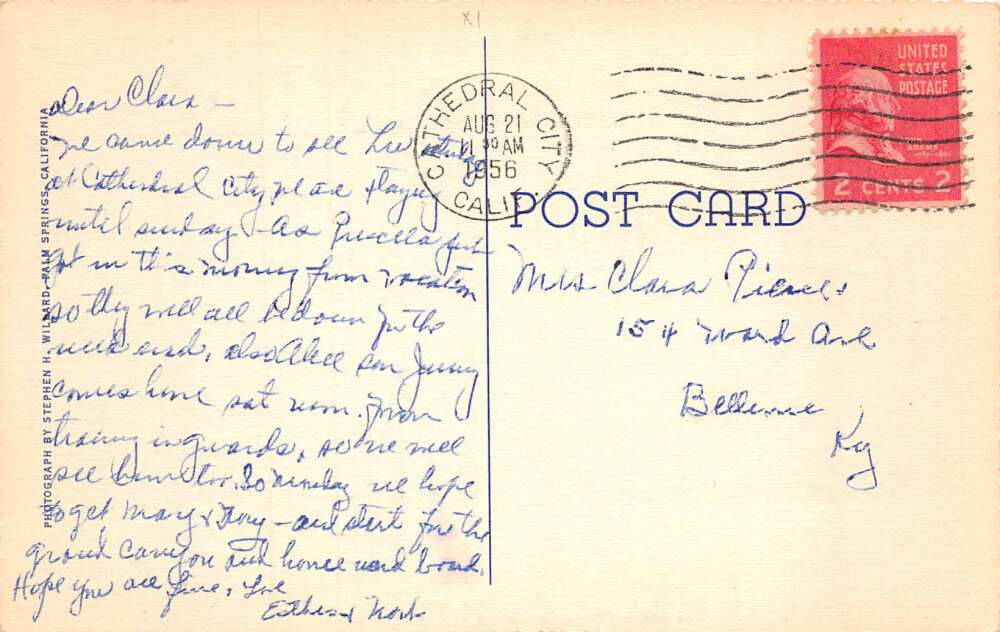 X1
Dear Clara –
We came down to see
at Cathedral City, we are staying
until sunday – As just
got in this morning from vacation
so they will all be down for the
week end, also Alice son Jimmy
comes home sat noon. from
training in guards, so we will
see him too. So monday we hope
to get Mary & – and start for the
grand Canyon and home ward bound.
Hope you all fine, Love
Esther &
PHOTOGRAPH BY STEPHEN H. WILLARD, PALM SPRINGS, CALIFORNIA
CATHEDRAL CITY
AUG 21
11 30 AM
1956
CALIF.
UNITED
STATES
POSTAGE
ADAMS
2 CENTS 2
POST CARD
Mrs Clara
154 Ward Ave
Bellevue
Ky